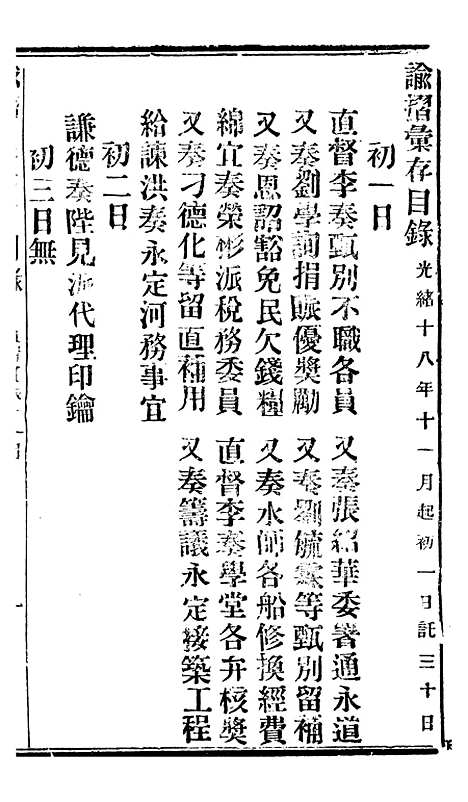 諭摺彙存目錄 光緒十八年十一月起初一日訖三十日
初一日
直督李奏甄別不職各員 又奏張紹華委署通永道
又奏劉學詢捐賑優獎勵 又奏劉毓霖等甄別留補
又奏恩詔豁免民欠錢糧 又奏水師各船修換經費
綿宜奏榮彬派稅務委員 直督李奏學堂各弁核獎
又奏刁德化等留直補用 又奏籌議永定接築工程
給諫洪奏永定河務事宜
初二日
謙德奏陛見派代理印鑰
初三日無